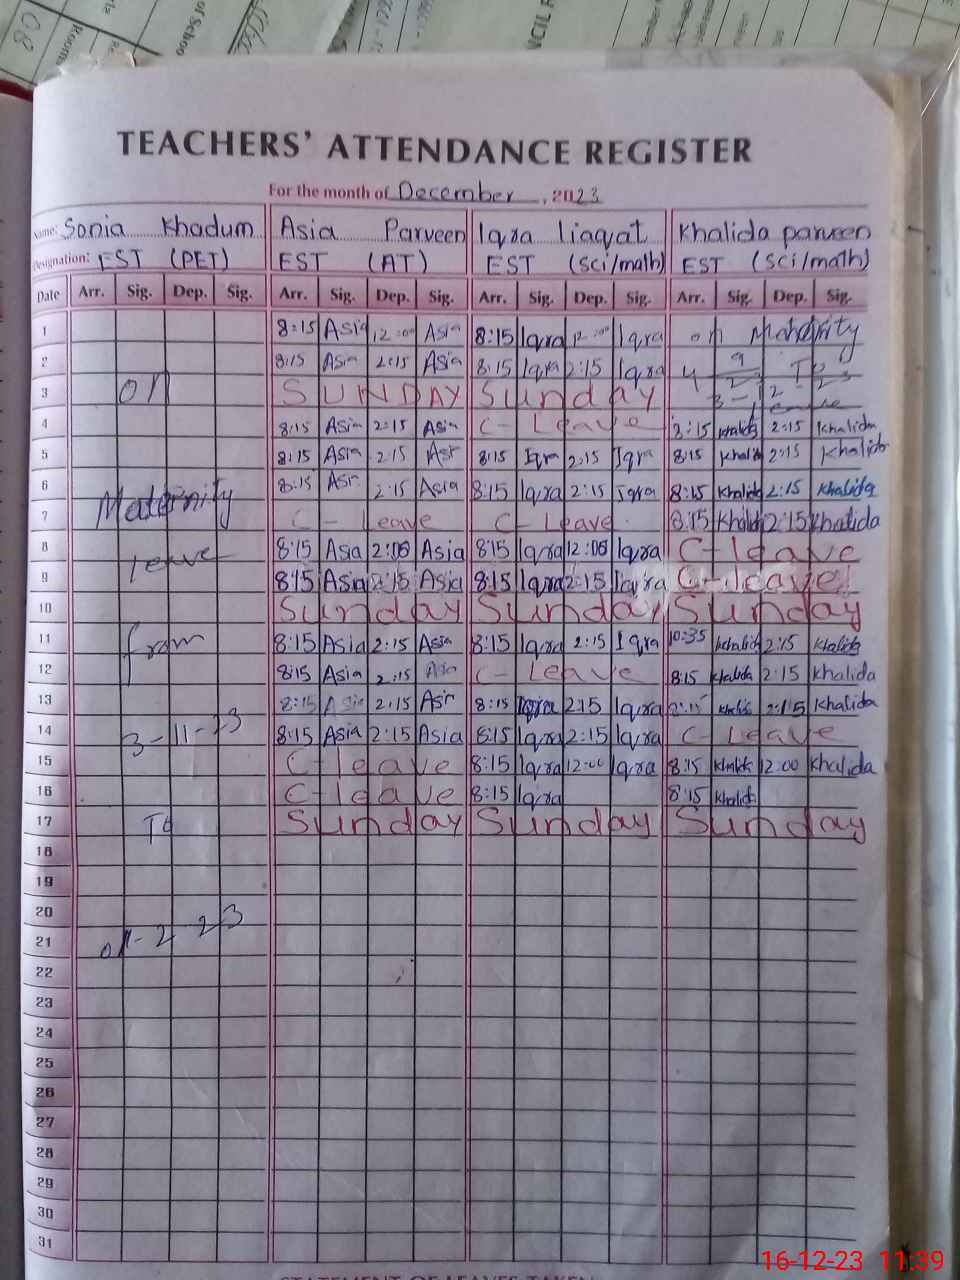 of Schoo
Rooms
08
NCIL F
TEACHERS' ATTENDANCE REGISTER
For the month of December, 2023
Name: Sonia Khadum Asia Parveen Iqra liaqat Khalida parveen
Designation: EST (PET) EST (AT) EST (Sci/math) EST (Sci/math)
Date Arr. Sig. Dep. Sig. Arr. Sig. Dep. Sig. Arr. Sig. Dep. Sig. Arr. Sig. Dep. Sig.
1 8:15 Asia 12:00 Asia 8:15 Iqra 12:00 Iqra on Maternity
2 8:15 Asia 2:15 Asia 8:15 Iqra 2:15 Iqra
3 on SUNDAY Sunday
4 8:15 Asia 2:15 Asia C- Leave 8:15 Khalida 2:15 Khalida
5 8:15 Asia 2:15 Asr 8:15 Iqra 2:15 Iqra 8:15 Khalid 2:15 Khalida
6 Maternity 8:15 Asr 2:15 Asia 8:15 Iqra 2:15 Iqra 8:15 Khalida 2:15 Khalida
7 C- Leave C- Leave 8:15 Khalida 2:15 Khalida
8 leave 8:15 Asia 2:06 Asia 8:15 Iqra 12:06 Iqra C-leave
9 8:15 Asia 2:15 Asia 8:15 Iqra 2:15 Iqra C-leave
10 Sunday Sunday Sunday
11 from 8:15 Asia 2:15 Asia 8:15 Iqra 2:15 Iqra 10:35 Khalida 2:15 Khalida
12 8:15 Asia 2:15 Asia C- Leave 8:15 Khalida 2:15 Khalida
13 8:15 Asia 2:15 Asr 8:15 Iqra 2:15 Iqra Khalida 2:15 Khalida
14 3-11-23 8:15 Asia 2:15 Asia 8:15 Iqra 2:15 Iqra C- Leave
15 C-leave 8:15 Iqra 12:00 Iqra 8:15 Khalida 12:00 Khalida
16 C-leave 8:15 Iqra 8:15 Khalid
17 To Sunday Sunday Sunday
18
19
20
21
22
23
24
25
26
27
28
29
30
31
STATEMENT OF LEAVES TAKEN
16-12-23 11:39